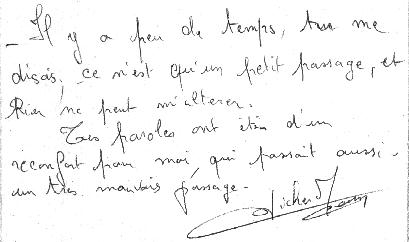 - Il y a peu de temps, tu me
disais, ce n'est qu'un petit passage, et
Rien ne peut m'altérer.
Tes paroles ont été d'un
réconfort pour moi, qui passait aussi
un très mauvais passage -